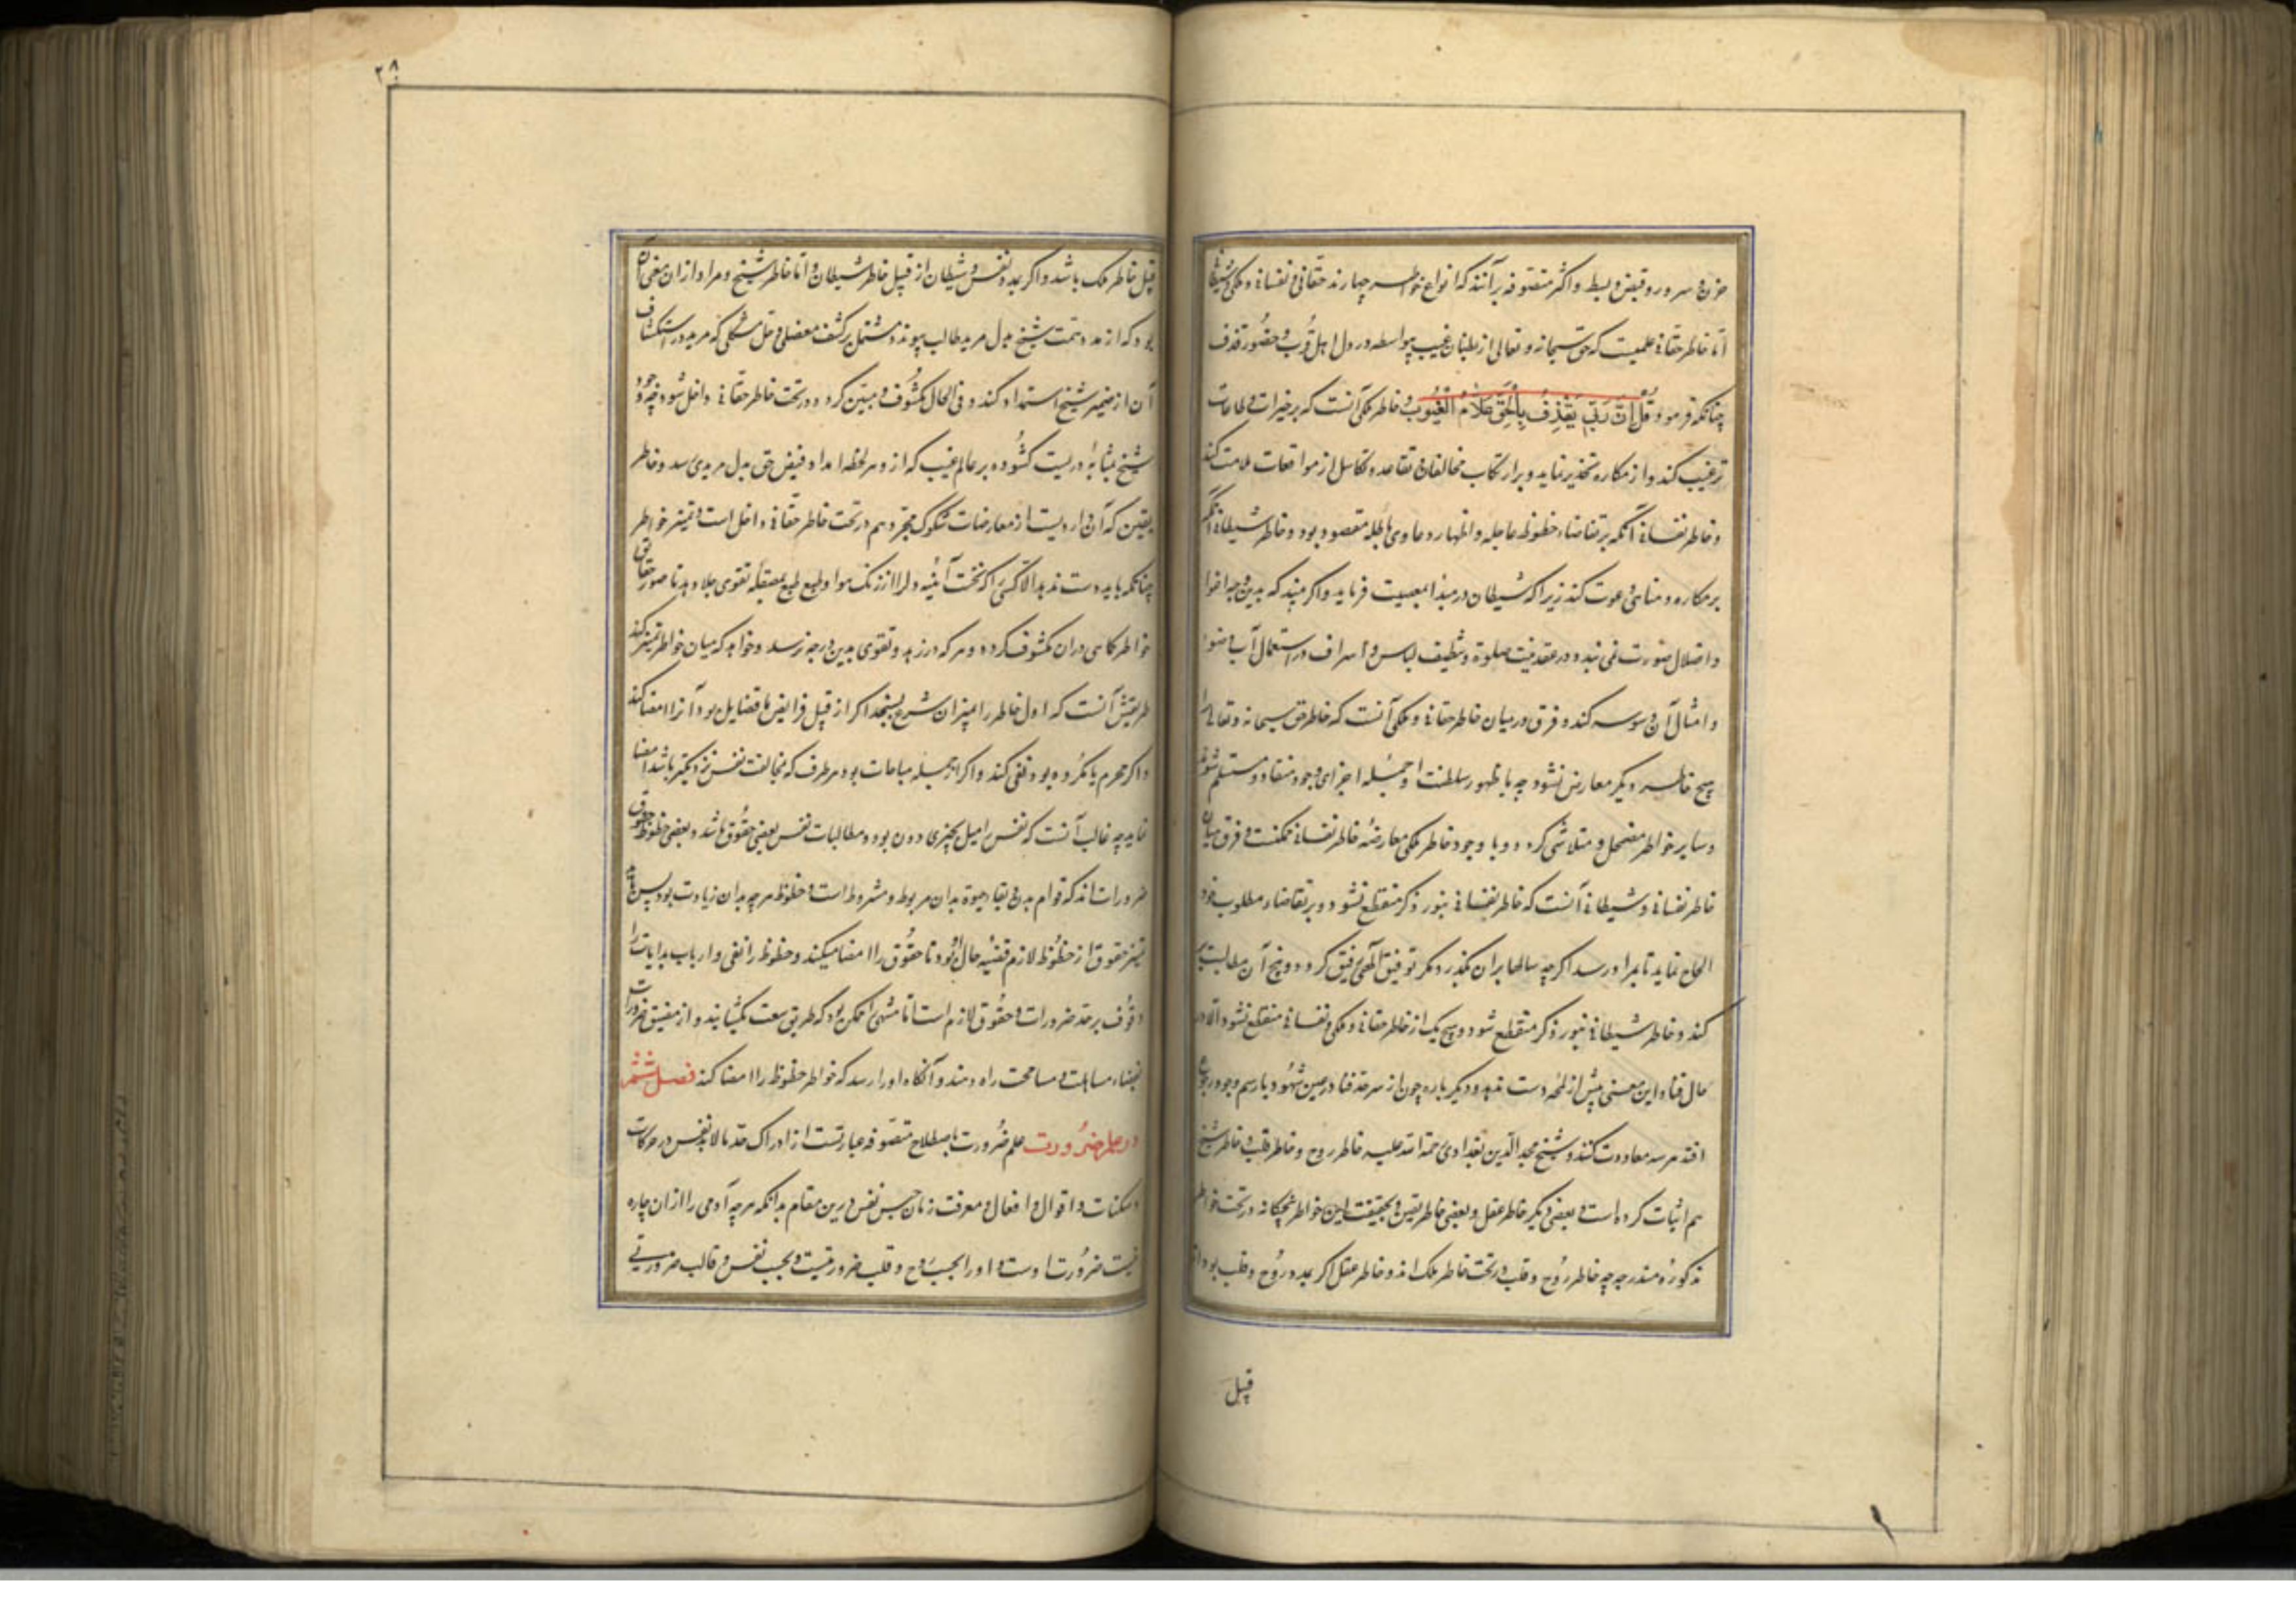 حزن و سرور و قبض و بسط و اکثر متصوفه برآنند که انواع خواطر چهارند حقانی و نفسانی و ملکی و شیطانی
اما خاطر حقانی علمیست که حق سبحانه و تعالی از بطنان غیب بیواسطه در دل اهل قرب و حضور قذف
چنانکه فرمود قُل اِنَّ رَبّی یَقذِفُ بِالحَقِّ عَلّامُ الغُیُوب و خاطر ملکی آنست که بر خیرات و طاعات
ترغیب کند و از مکاره تحذیر نماید و بر ارتکاب مخالفات و تقاعد و تکاسل از موافقات ملامت کند
و خاطر نفسانی آنکه بر تقاضاء حظوظ عاجله و اظهار دعاوی باطله مقصور بود و خاطر شیطانی آنکه
بر مکاره و مناهی دعوت کند زیرا که شیطان در مبدا بمعصیت فرماید و اکر بیند که بدین وجه اغوا
و اضلال صورت نمی بندد در عقد نیت صلوة و تنظیف لباس و اسراف در استعمال آب وضوء
و امثال آن وسوسه کند و فرق در میان خاطر حقانی و ملکی آنست که خاطر حق سبحانه و تعالی را
هیچ خاطر دیکر معارض نشود چه با ظهور سلطنت او جمله اجزای وجود منقاد و مستسلم شود
و سایر خواطر مضمحل و متلاشی کردد و با وجود خاطر ملکی معارضه خاطر نفسانی ممکنست و فرق میان
خاطر نفسانی و شیطانی آنست که خاطر نفسانی بنور ذکر منقطع نشود و بر تقاضاء مطلوب خود
الحاح نماید تا بمراد رسد اکرچه سالها بران بکذرد مکر توفیق الهی رفیق کردد و بیخ آن مطالبت بر
کند و خاطر شیطانی بنور ذکر منقطع شود و هیچ یک از خاطر حقانی و ملکی و نفسانی منقطع نشود الا در
حال فناء و این معنی بیش از لمحه دست ندهد و دیکر باره چون از سرحد فنا در عین شهود با رسم وجود رجوع
افتد هر سه معاودت کنند و شیخ مجدالدین بغدادی رحمة الله علیه خاطر روح و خاطر قلب و خاطر شیخ
هم اثبات کرده است و بعضی دیکر خاطر عقل و بعضی خاطر یقین و بحقیقت این خواطر پنجکانه در تحت خواطر
مذکوره مندرجه چه خاطر روح و قلب در تحت خاطر ملک اند و خاطر عقل اکر بمدد روح و قلب بود از
قبل
۲۸
قبل خاطر ملک باشد و اکر بمدد نفس و شیطان از قبیل خاطر شیطان و اما خاطر شیخ و مراد از ان معنی آن
بود که از مدد همت شیخ بدل مرید طالب پیوندد مشتمل بر کشف معضلی و حل مشکلی که مرید در استکشاف
آن از ضمیر شیخ استمداد کند و فی الحال مکشوف و مبین کردد و در تحت خاطر حقانی داخل شود چه وجود
شیخ بمثابه دریست کشوده بر عالم غیب که از و هر لحظه امداد فیض حق بدل مرید میرسد و خاطر
یقین که آن واردیست از معارضات شکوک مجرد هم در تحت خاطر حقانی داخل است و تمییز خواطر
چنانکه باید دست ندهد الا کسی را که نخست آئینه دل را از زنک هوا و طبع بمصقله تقوی جلا دهد تا صور حقایق
خواطر کماهی دران مکشوف کردد و هر که در زهد و تقوی بدین درجه نرسد و خواهد که میان خواطر تمییز کند
طریقش آنست که اول خاطر را بمیزان شرع بسنجد اکر از قبیل فرایض یا فضایل بود آنرا امضا کند
و اکر محرم یا مکروه بود نفی کند و اکر از جمله مباحات بود هر طرف که بمخالفت نفس نزدیکتر باشد امضا
نماید چه غالب آنست که نفس را میل بچیزی دون بود و مطالبات نفس بعضی حقوق باشد و بعضی حظوظ حقوق
ضرورات اند که قوام بدن و بقاء حیوة بدان مربوط و مشروط است و حظوظ هر چه بدان زیادت بود پس
تمییز حقوق از حظوظ لازم قضیه حال بود تا حقوق را امضا میکند و حظوظ را نفی و ارباب بدایات را
وقوف بر حد ضرورات و حقوق لازم است اما منتهی را ممکن بود که طریق سعت بکشایند و از مضیق ضرورات
بفضاء مساهلت و مسامحت راه دهند و آنکاه او را رسد که خواطر حظوظ را امضا کند فصل ششم
در علم ضرورت علم ضرورت باصطلاح متصوفه عبارتست از ادراک حد مالابد نفس در حرکات
و سکنات و اقوال و افعال و معرفت زمان حبس نفس درین مقام بدانکه هر چه آدمی را از ان چاره
نیست ضرورت اوست و او را بحسب روح و قلب ضرورتیست و بحسب نفس و قالب ضرورتی